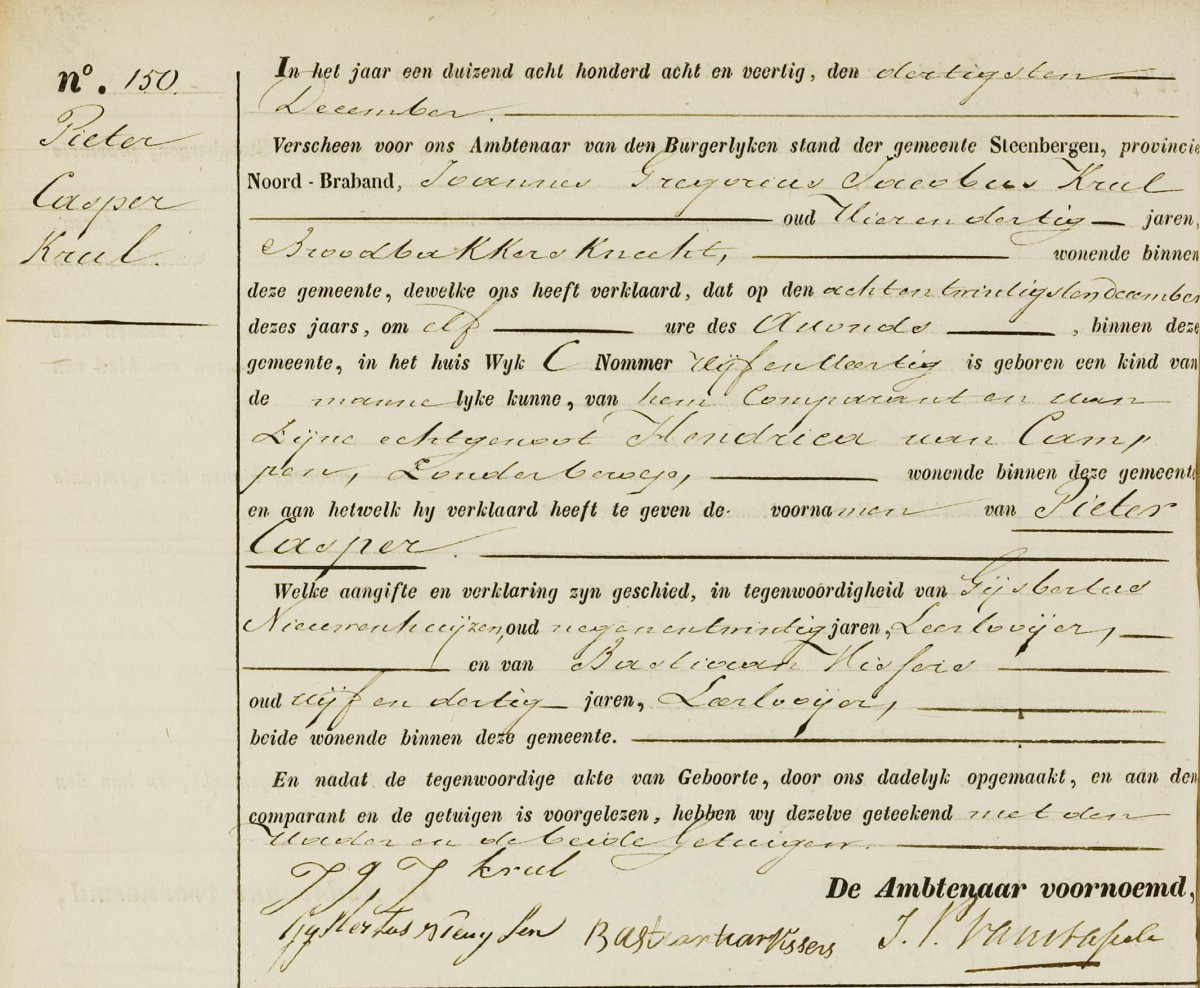 nº. 150.
Pieter
Casper
Krul.
In het jaar een duizend acht honderd acht en veertig, den dertigsten
December.
Verscheen voor ons Ambtenaar van den Burgerlyken stand der gemeente Steenbergen, provincie
Noord-Braband, Joannes Gregorius Jacobus Krul
oud Vier en dertig jaren,
Broodbakkersknecht, wonende binnen
deze gemeente, dewelke ons heeft verklaard, dat op den achtentwintigsten december
dezes jaars, om elf ure des Avonds, binnen deze
gemeente, in het huis Wyk C Nommer vijf en veertig is geboren een kind van
de mannelyke kunne, van hem Comparant en van
Zijne echtgenoot Hendrica van Cam,
pen, Zonder beroep, wonende binnen deze gemeente
en aan hetwelk hy verklaard heeft te geven de voornamen van Pieter
Casper.
Welke aangifte en verklaring zyn geschied, in tegenwoordigheid van Gijsbertus
Nieuwenhuijzen, oud negenentwintig jaren, Leerlooijer,
en van Bastiaan Vissers
oud vijf en dertig jaren, Leerlooijer,
beide wonende binnen deze gemeente.
En nadat de tegenwoordige akte van Geboorte, door ons dadelyk opgemaakt, en aan den
comparant en de getuigen is voorgelezen, hebben wy dezelve geteekend met den
Vader en de beide Getuigen.
J G J Krul
De Ambtenaar voornoemd,
Vissers